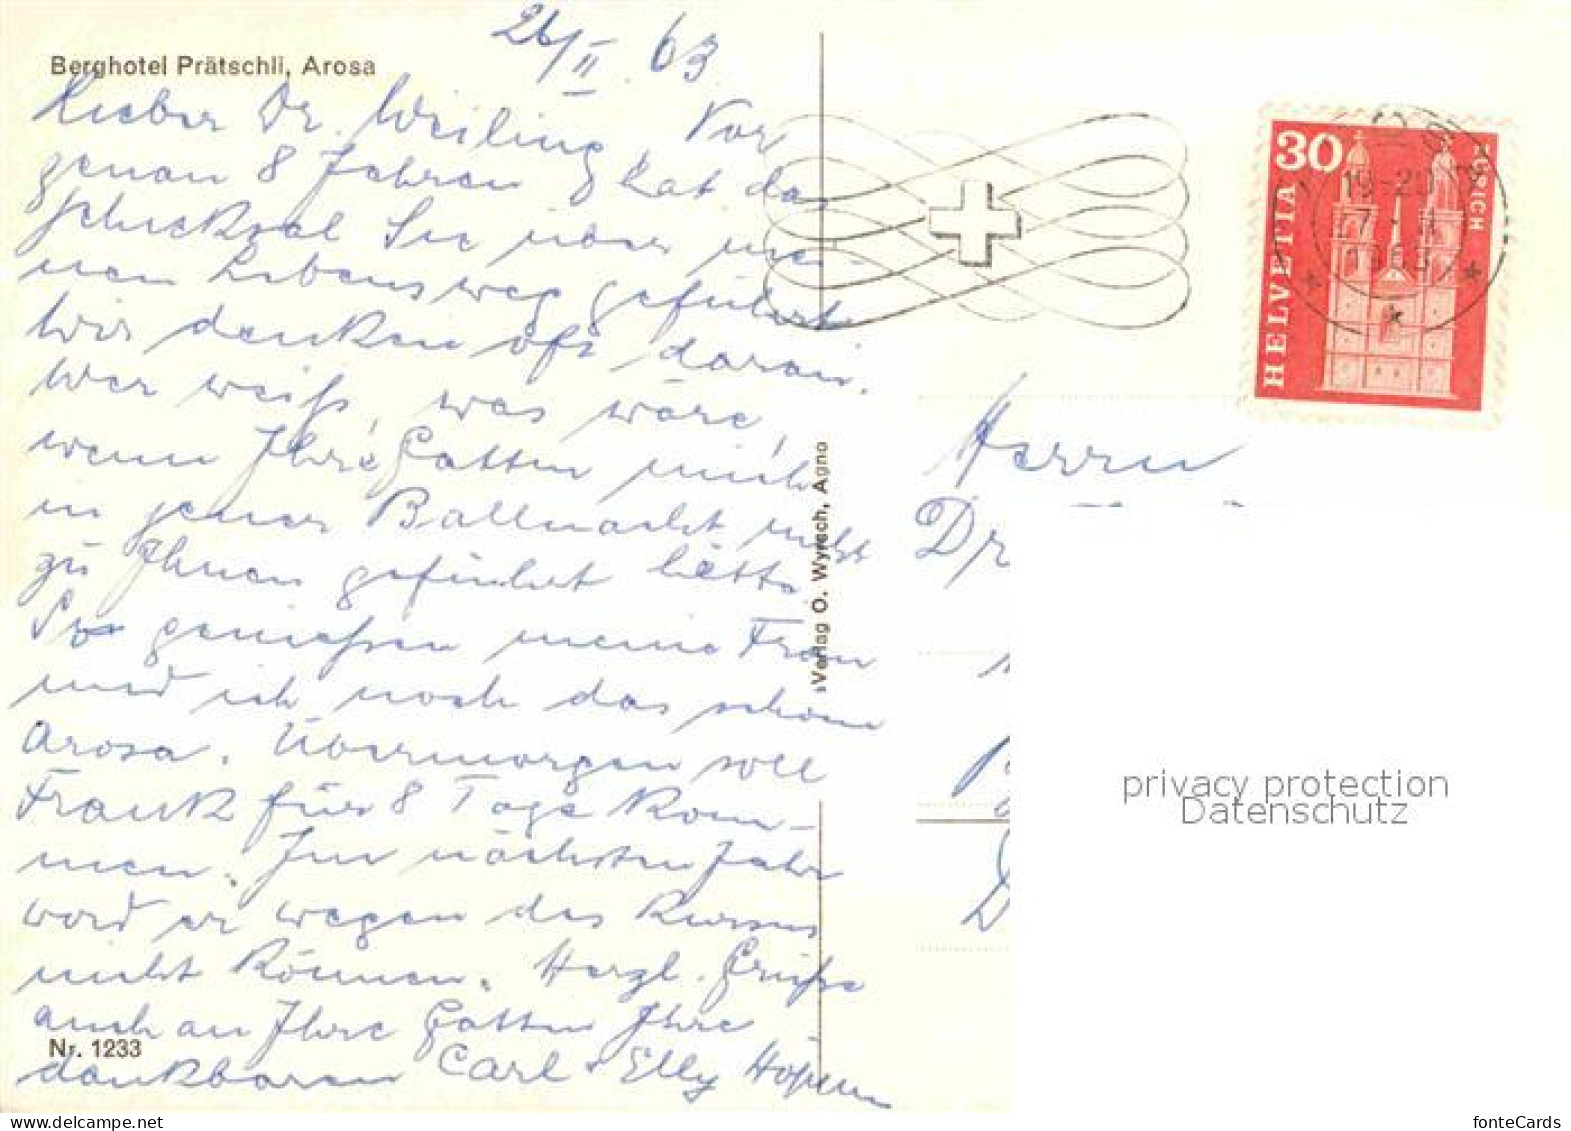 26/II 63
Berghotel Prätschli, Arosa
Lieber Dr. Weiling Vor
genau 8 Jahren hat das
Schicksal Sie über mei-
nen Lebensweg geführt.
Wir denken oft daran.
Wer weiß, was wäre,
wenn Ihre Gattin mich
in jener Ballnacht nicht
zu Ihnen geführt hätte
So genießen meine Frau
und ich noch das schöne
Arosa. Übermorgen soll
Frank für 8 Tage kom-
men. Im nächsten Jahr
wird er wegen des Kursus
nicht können. Herzl. Grüße
auch an Ihre Gattin Ihre
dankbaren Carl + Elly
Nr. 1233
Verlag O. Wyrsch, Agno
30
HELVETIA
ZÜRICH
19-20
1963
Herrn
Dr
privacy protection
Datenschutz
fonteCards